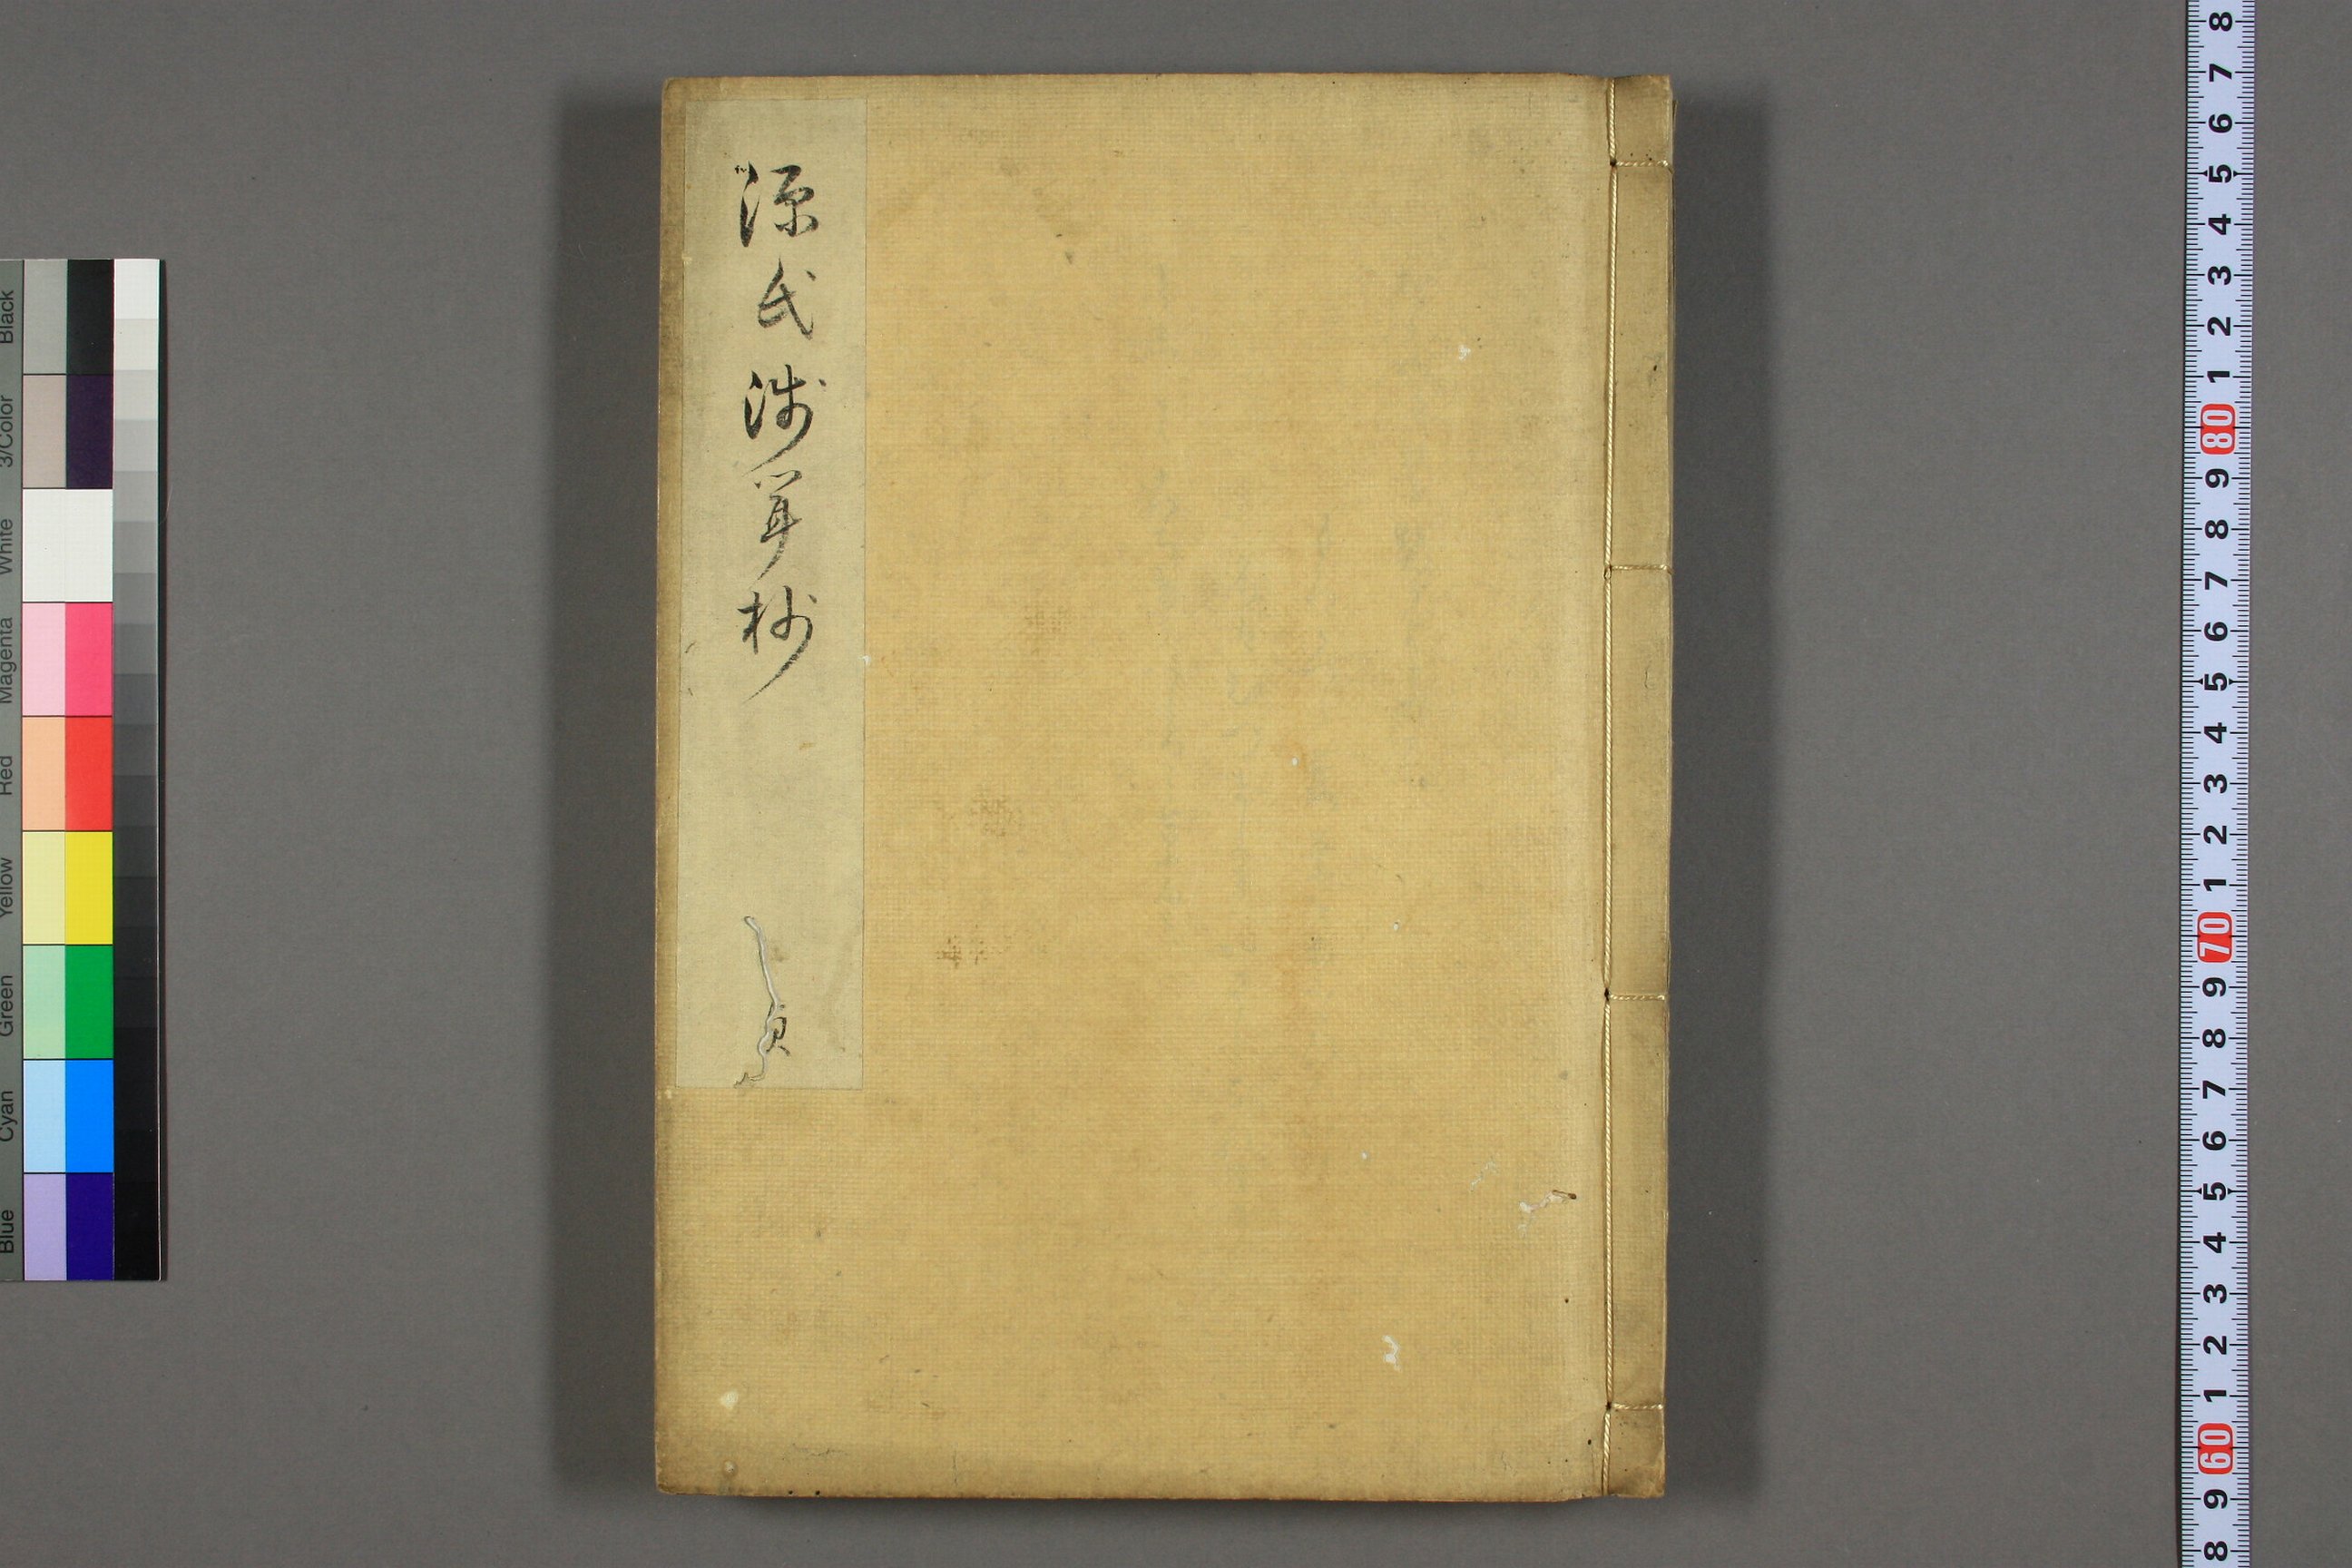 Blue Cyan Green Yellow Red Magenta White 3/Color Black
源氏浅抄
貞
8 9 60 1 2 3 4 5 6 7 8 9 70 1 2 3 4 5 6 7 8 9 80 1 2 3 4 5 6 7 8